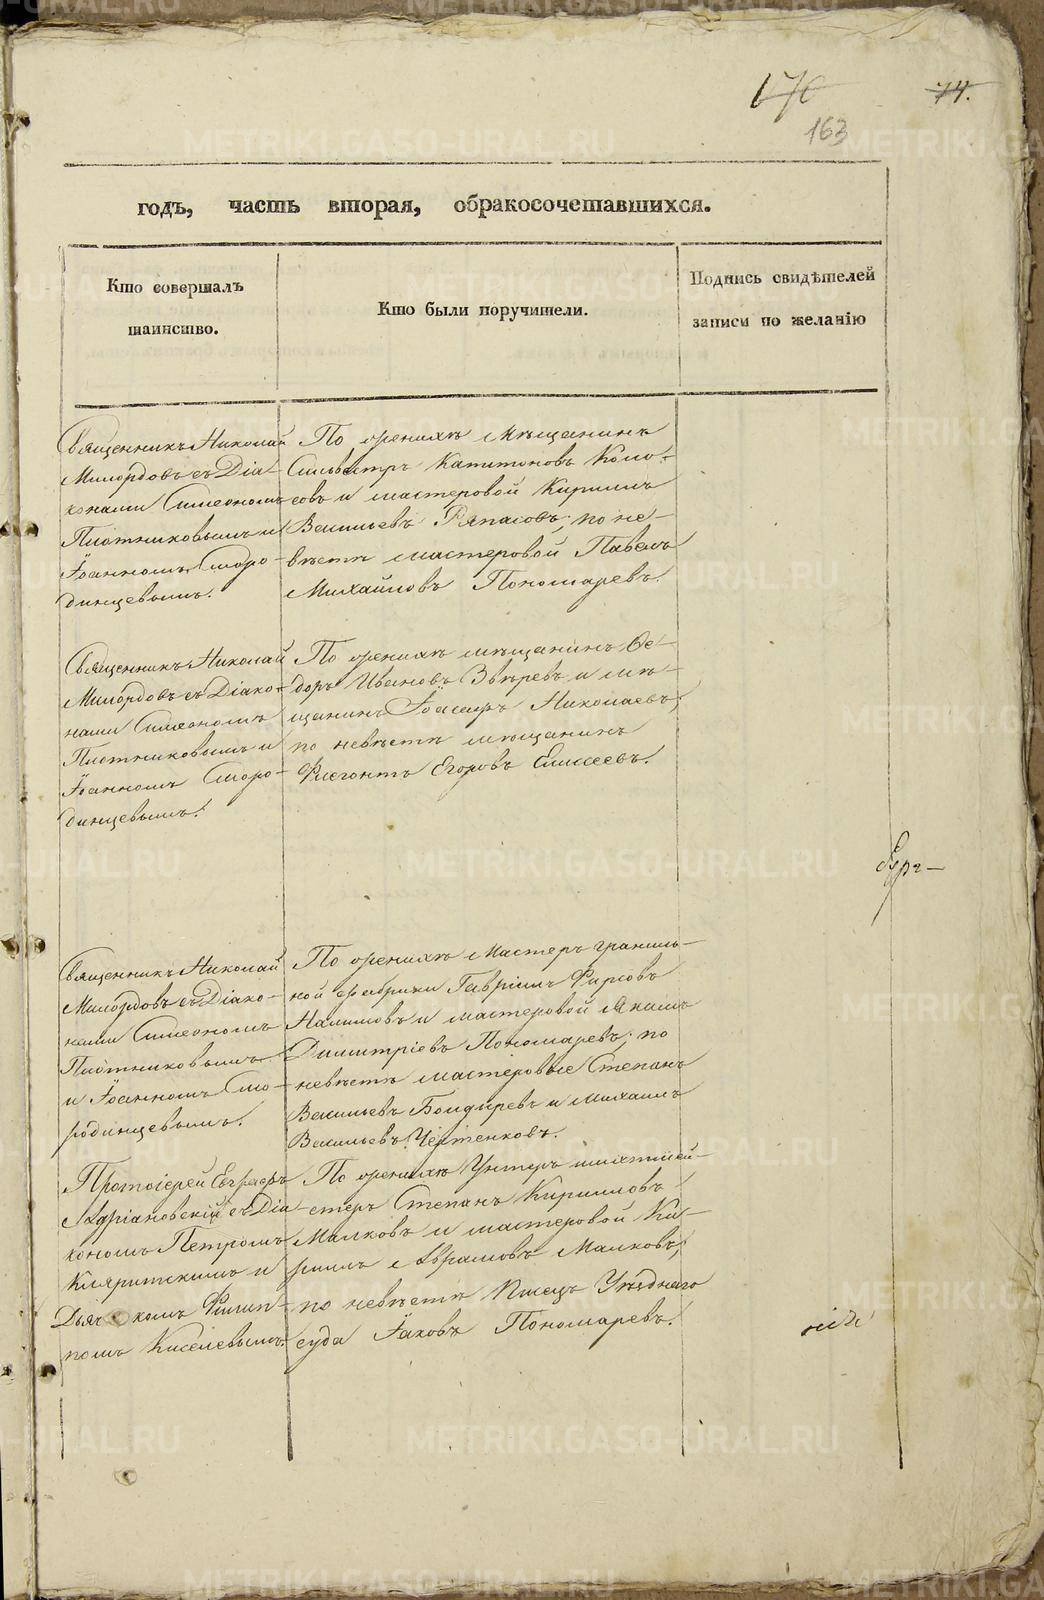 170
74.
163
годъ, часть вторая, обракосочетавшихся.
Кто совершалъ
таинство.
Кто были поручители.
Подпись свидѣтелей
записи по желанію
Священникъ Николай
Милордовъ съ Діа-
конами Симеономъ
Плотниковымъ и
Іоанномъ Сморо-
динцевымъ.
По женихѣ мѣщанинъ
Сильвестръ Капитоновъ Коло-
совъ и мастеровой Кириллъ
Васильевъ Ряпасовъ; по не-
вѣстѣ мастеровой Павелъ
Михайловъ Пономаревъ.
Священникъ Николай
Милордовъ съ Діако-
нами Симеономъ
Плотниковымъ и
Іоанномъ Сморо-
динцевымъ.
По женихѣ мѣщанинъ Ѳе-
доръ Ивановъ Звѣревъ и мѣ-
щанинъ Іоасафъ Николаевъ;
по невѣстѣ мѣщанинъ
Флегонтъ Егоровъ Елисеевъ.
Священникъ Николай
Милордовъ съ Діако-
нами Симеономъ
Плотниковымъ
и Іоанномъ Смо-
родинцевымъ.
По женихѣ Мастеръ граниль-
ной фабрики Гавріилъ Фирсовъ
Налимовъ и мастеровой Якимъ
Димитріевъ Пономаревъ; по
невѣстѣ мастеровые Степанъ
Васильевъ Болдыревъ и Михаилъ
Васильевъ Чертенковъ.
Протоіерей Евграфъ
Адріановскій съ Діа-
кономъ Петромъ
Кляритскимъ и
Дьячкомъ Филип-
помъ Киселевымъ.
По женихѣ Унтеръ шихтмей-
стеръ Степанъ Кирилловъ
Малковъ и мастеровой Ки-
риллъ Аврамовъ Малковъ;
по невѣстѣ Писецъ Уѣзднаго
суда Іаковъ Пономаревъ.